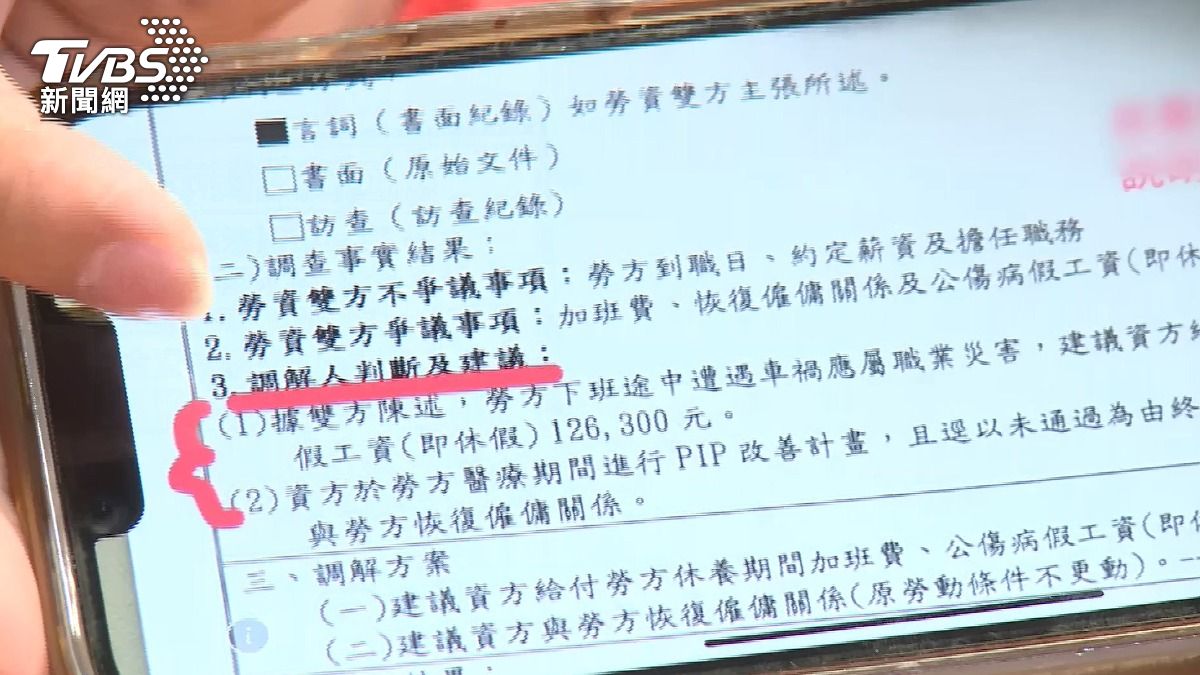 TVBS
新聞網
■言詞（書面紀錄）如勞資雙方主張所述。
□書面（原始文件）
□訪查（訪查紀錄）
二)調查事實結果：
1. 勞資雙方不爭議事項：勞方到職日、約定薪資及擔任職務
2. 勞資雙方爭議事項：加班費、恢復僱傭關係及公傷病假工資(即休
3. 調解人判斷及建議：
(1)據雙方陳述，勞方下班途中遭遇車禍應屬職業災害，建議資方給
假工資(即休假)126,300元。
(2)資方於勞方醫療期間進行PIP改善計畫，且逕以未通過為由終
與勞方恢復僱傭關係。
三、調解方案
(一)建議資方給付勞方休養期間加班費、公傷病假工資(即休
(二)建議資方與勞方恢復僱傭關係(原勞動條件不更動)。